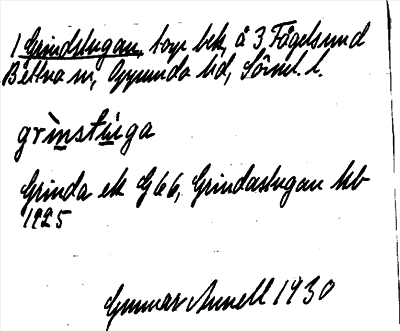 1 Grindstugan, torp bek, å 3 Fågelsund
Bettna sn, Oppunda hd, Sörml. l.
grìnstùga
Grinda ek G 66, Grindastugan hb
1925
Gunnar Annell 1930